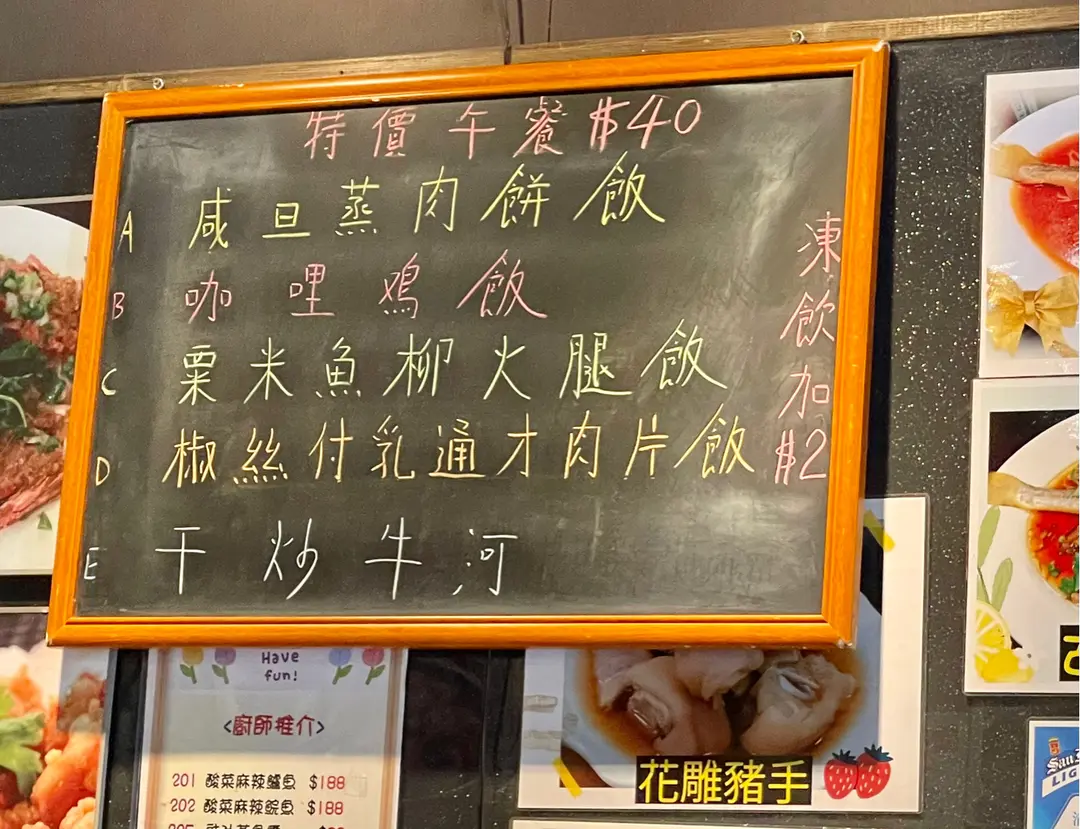 特價午餐$40
A 咸旦蒸肉餅飯
B 咖哩鸡飯
C 粟米魚柳火腿飯
D 椒絲付乳通才肉片飯
E 干炒牛河
凍飲加$2
Have
fun!
<廚師推介>
201 酸菜麻辣鱸魚 $188
202 酸菜麻辣鯇魚 $188
花雕豬手